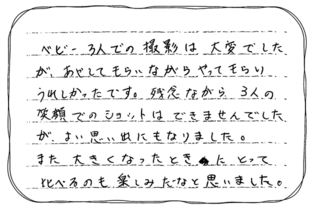 ベビー3人での撮影は大変でした
が、あやしてもらいながらやってもらい
うれしかったです。残念ながら3人の
笑顔でのショットはできませんでした
がよい思い出にもなりました。
また大きくなったときにとって
比べるのも楽しみだなと思いました。